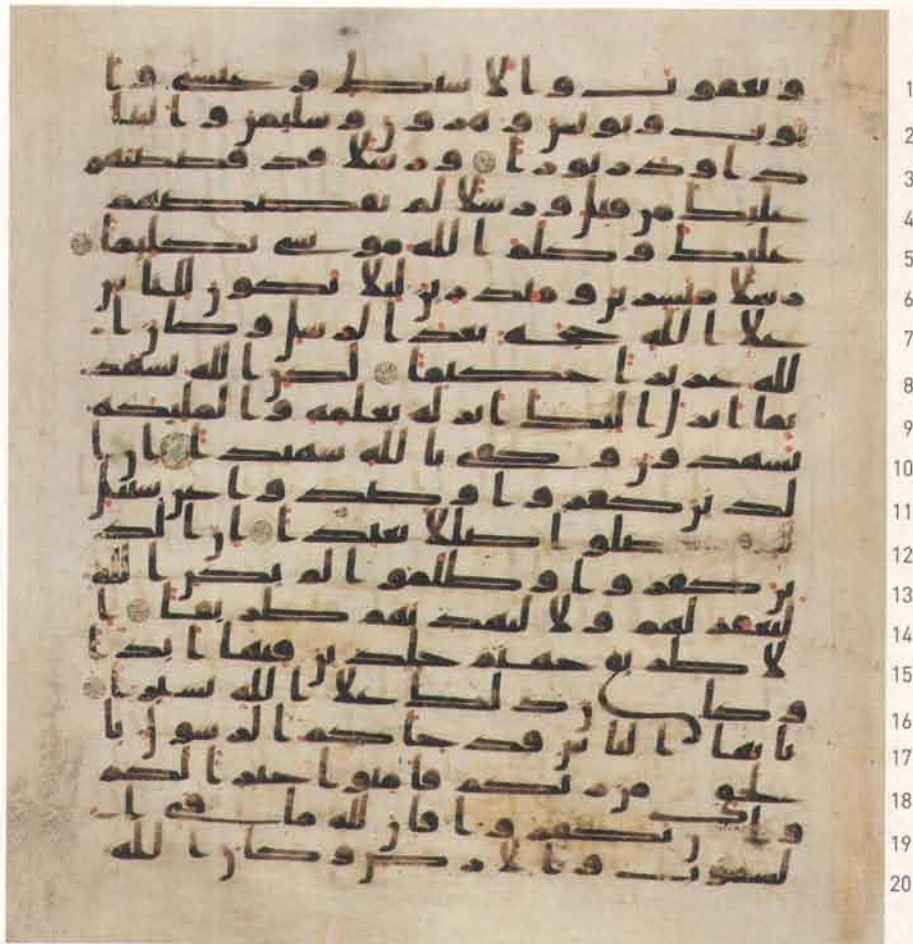 1 ويعقوب والاسبط وعيسى وا
2 يوب ويونس وهرون وسليمن واتينا
3 داود زبورا ورسلا قد قصصنهم
4 عليك من قبل ورسلا لم نقصصهم
5 عليك وكلم الله موسى تكليما
6 رسلا مبشرين ومنذرين ليلا يكون للناس
7 علا الله حجة بعد الرسل وكان ا
8 لله عزيزا حكيما لكن الله يشهد
9 بما انزل اليك انزله بعلمه والمليكة
10 يشهدون وكفى بالله شهيدا ان ا
11 لذين كفروا وصدوا عن سبيل
12 الله قد ضلوا ضللا بعيدا ان الذ
13 ين كفروا وظلموا لم يكن الله
14 ليغفر لهم ولا ليهديهم طريقا ا
15 لا طريق جهنم خلدين فيها ابدا
16 وكان ذلك علا الله يسيرا
17 يايها الناس قد جاكم الرسول با
18 لحق من ربكم فامنوا خيرا لكم
19 وان تكفروا فان لله ما في ا
20 لسموت والارض وكان الله